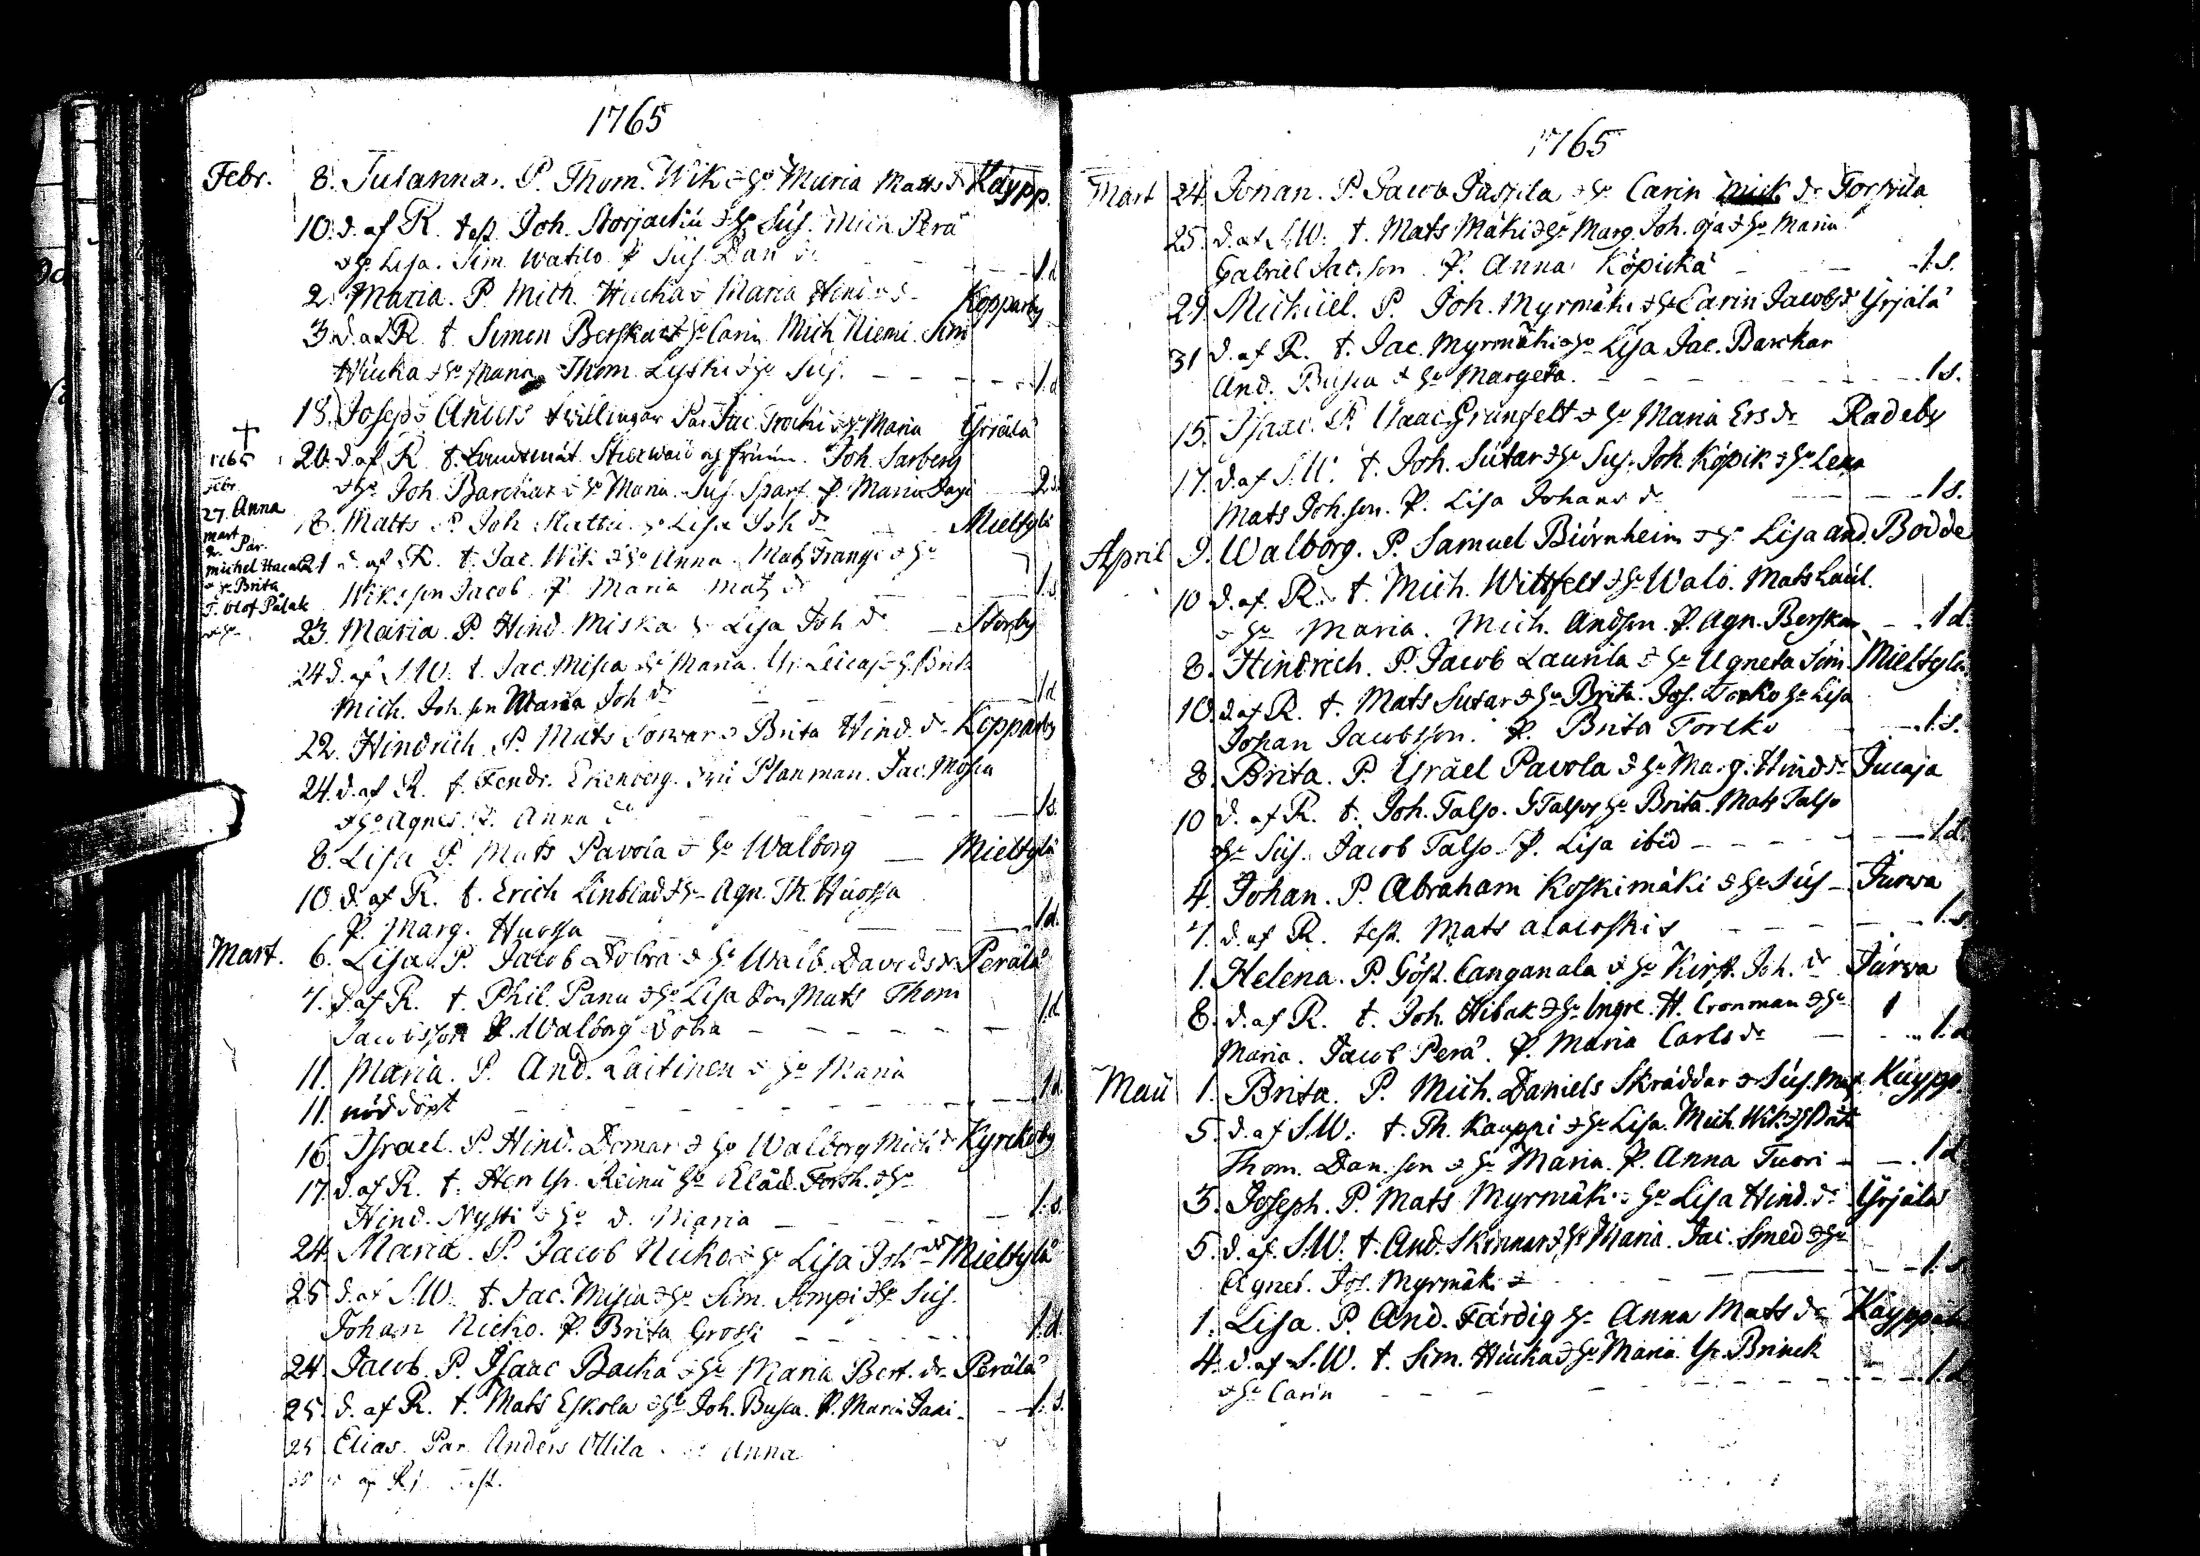 1765
Febr. 8. Susanna. P. Thom. Wik & Hu Maria Matts dr Käypp.
10. d. af R. test. Joh. Storjacku & Hu Sus. Mich. Perä
& Hu Lisa. Sim. P. Sus. Dan dr - - - 1.d
2. Maria. P. Mich. Hucka & Maria Hind. dr Kopparby
3. d. af R. t. Simon Berska & Hu Carin. Mich Niemi. Sim
Hucka & Hu Maria Thom. Lyski & Hu Sus. - - - 1.d
18. Joseph & Anders tvillingar Par Jac. & Hu Maria Yrjälä
20. d. af R. t. Lieutenat. og fruun. Joh. Sarberg
& Hu Joh. Barckar & Hu Maria. Sus. P. Maria 2 s.
†
1765
Febr.
27. Anna
mart
2. Par.
Michel
& Hu Brita
T. Olof Pålak
& Hu
18. Matts P. Joh. Hu Lisa Joh dr Mieltylä
21 d. af R. t. Jac. Wik & Hu Anna. Mats Frangi & Hu
Wiks son Jacob. P. Maria Mats dr - - 1.s.
23. Maria. P. Hind. Miska Hu Lisa Joh dr - Storby
24 d. af S.W. t. Jac. Misca & Hu Maria. & Hu Brita
Mich. Joh. son Maria Joh dr - - - 1d
22. Hindrich P. Mats & Brita Hind. dr Kopparby
24. d. af R. t. Fendr. Planman. Jac.
& Hu Agnes. P. Anna dr - - - 1s.
8. Lisa P. Mats Pavola & Hu Walborg - Mieltylä
10. d. af R. t. Erich Linblad & Hu Agn. Th. Huossa
P. Marg. Huossa - - - 1d.
Mart. 6. Lisa. P. Jacob Dobra & Hu Walb. Davids dr Perälä
7. d. af R. t. Phil. Panu & Hu Lisa Mats Thom
Jacobsson P. Walborg Dobra - - - 1d
11. Maria. P. And. Laitinen & Hu Maria
11. nöddöpt - - - 1d.
16. Israel. P. Hind. Domar & Hu Walborg Mich. dr Kyrckoby
17. d. af R. t. Herr Hu & Hu
Hind. Nysti & Hu d. Maria - - - 1.s.
24. Maria. P. Jacob Nicko & Hu Lisa Joh dr Mieltylä
25 d. af S.W. t. Jac. Misca & Hu Sim. Simpi & Hu Sus.
Johan Nicko. P. Brita Grossi - - - 1.d.
24. Jacob. P. Isaac Backa & Hu Maria Bert. dr Perälä
25. d. af R. t. Mats Eskola & Hu Joh. Busca. P. Maria - 1.s.
25 Elias. Par. Anders Ollila & Hu Anna
25 d af R. test.
1765
Mart 24. Johan. P. Jacob Jussila & Hu Carin dr
25. d. af S.W. t. Mats Mäki & Hu Marg. Joh. Oja & Hu Maria
Gabriel Jac. son. P. Anna Köpickä - - 1.s.
29. Michäel. P. Joh. Myrmäki & Hu Carin Jacobs dr Yrjälä
31 d. af R. t. Jac. Myrmäki & Hu Lisa Jac. Barckar
And. Busca & Hu Margeta. - - - 1s.
15. Isaac. P. Isaac Grünfelt & Hu Maria Ers dr Radeby
17. d. af S.W. t. Joh. Sutar & Hu Sus. Joh. Köpik & Hu Lena
Mats Joh. son. P. Lisa Johans dr - - 1s.
April 9. Walborg. P. Samuel Biörnheim & Hu Lisa And. Bodde
10 d. af. R. t. Mich. Wittfelt & Hu Walb. Mats
& Hu Maria. Mich. Andson. P. Agn. Berskar - 1d
8. Hindrich. P. Jacob Laurila & Hu Agneta Sim. Mieltylä
10. d. af R. t. Mats Sutar & Hu Brita. Jos. Torko Hu Lisa
Johan Jacobsson. P. Brita Torcko - 1.s.
8. Brita. P. Ysrael Pavola & Hu Marg. Hind dr Jucaja
10 d. af R. t. Joh. Talso. Hu Brita. Mats Talso
& Hu Sus. Jacob Talso. P. Lisa ibid - - - 1.d.
4. Johan. P. Abraham Koskimäki & Hu Sus - Jurva
7. d. af R. test. Mats - - - 1.s.
1. Helena. P. Göst. Canganala & Hu Kirst. Joh. dr Jurva
8. d. af R. t. Joh. Hibak & Hu Ingre. H. Cronman & Hu
Maria. Jacob Perä. P. Maria Carls dr - - 1.d
Maii 1. Brita. P. Mich. Daniels Skräddar & Sus. Käypp.
5. d. af S.W. t. Th. Kauppi & Hu Lisa. Mich. Wik & Hu Brita
Thom. Dan. son & Hu Maria. P. Anna Tuori - 1d
3. Joseph. P. Mats Myrmäki & Hu Lisa Hind. dr Yrjälä
5. d. af. S.W. t. And. Skinnar & Hu Maria. Jac. Smed & Hu
Agnet. Jos. Myrmäk & - - - 1.s
1. Lisa. P. And. Färdig Hu Anna Mats dr Käyppälä
4. d. af S.W. t. Sim. Hucka & Hu Maria. Brinck
& Hu Carin - - - 1.d